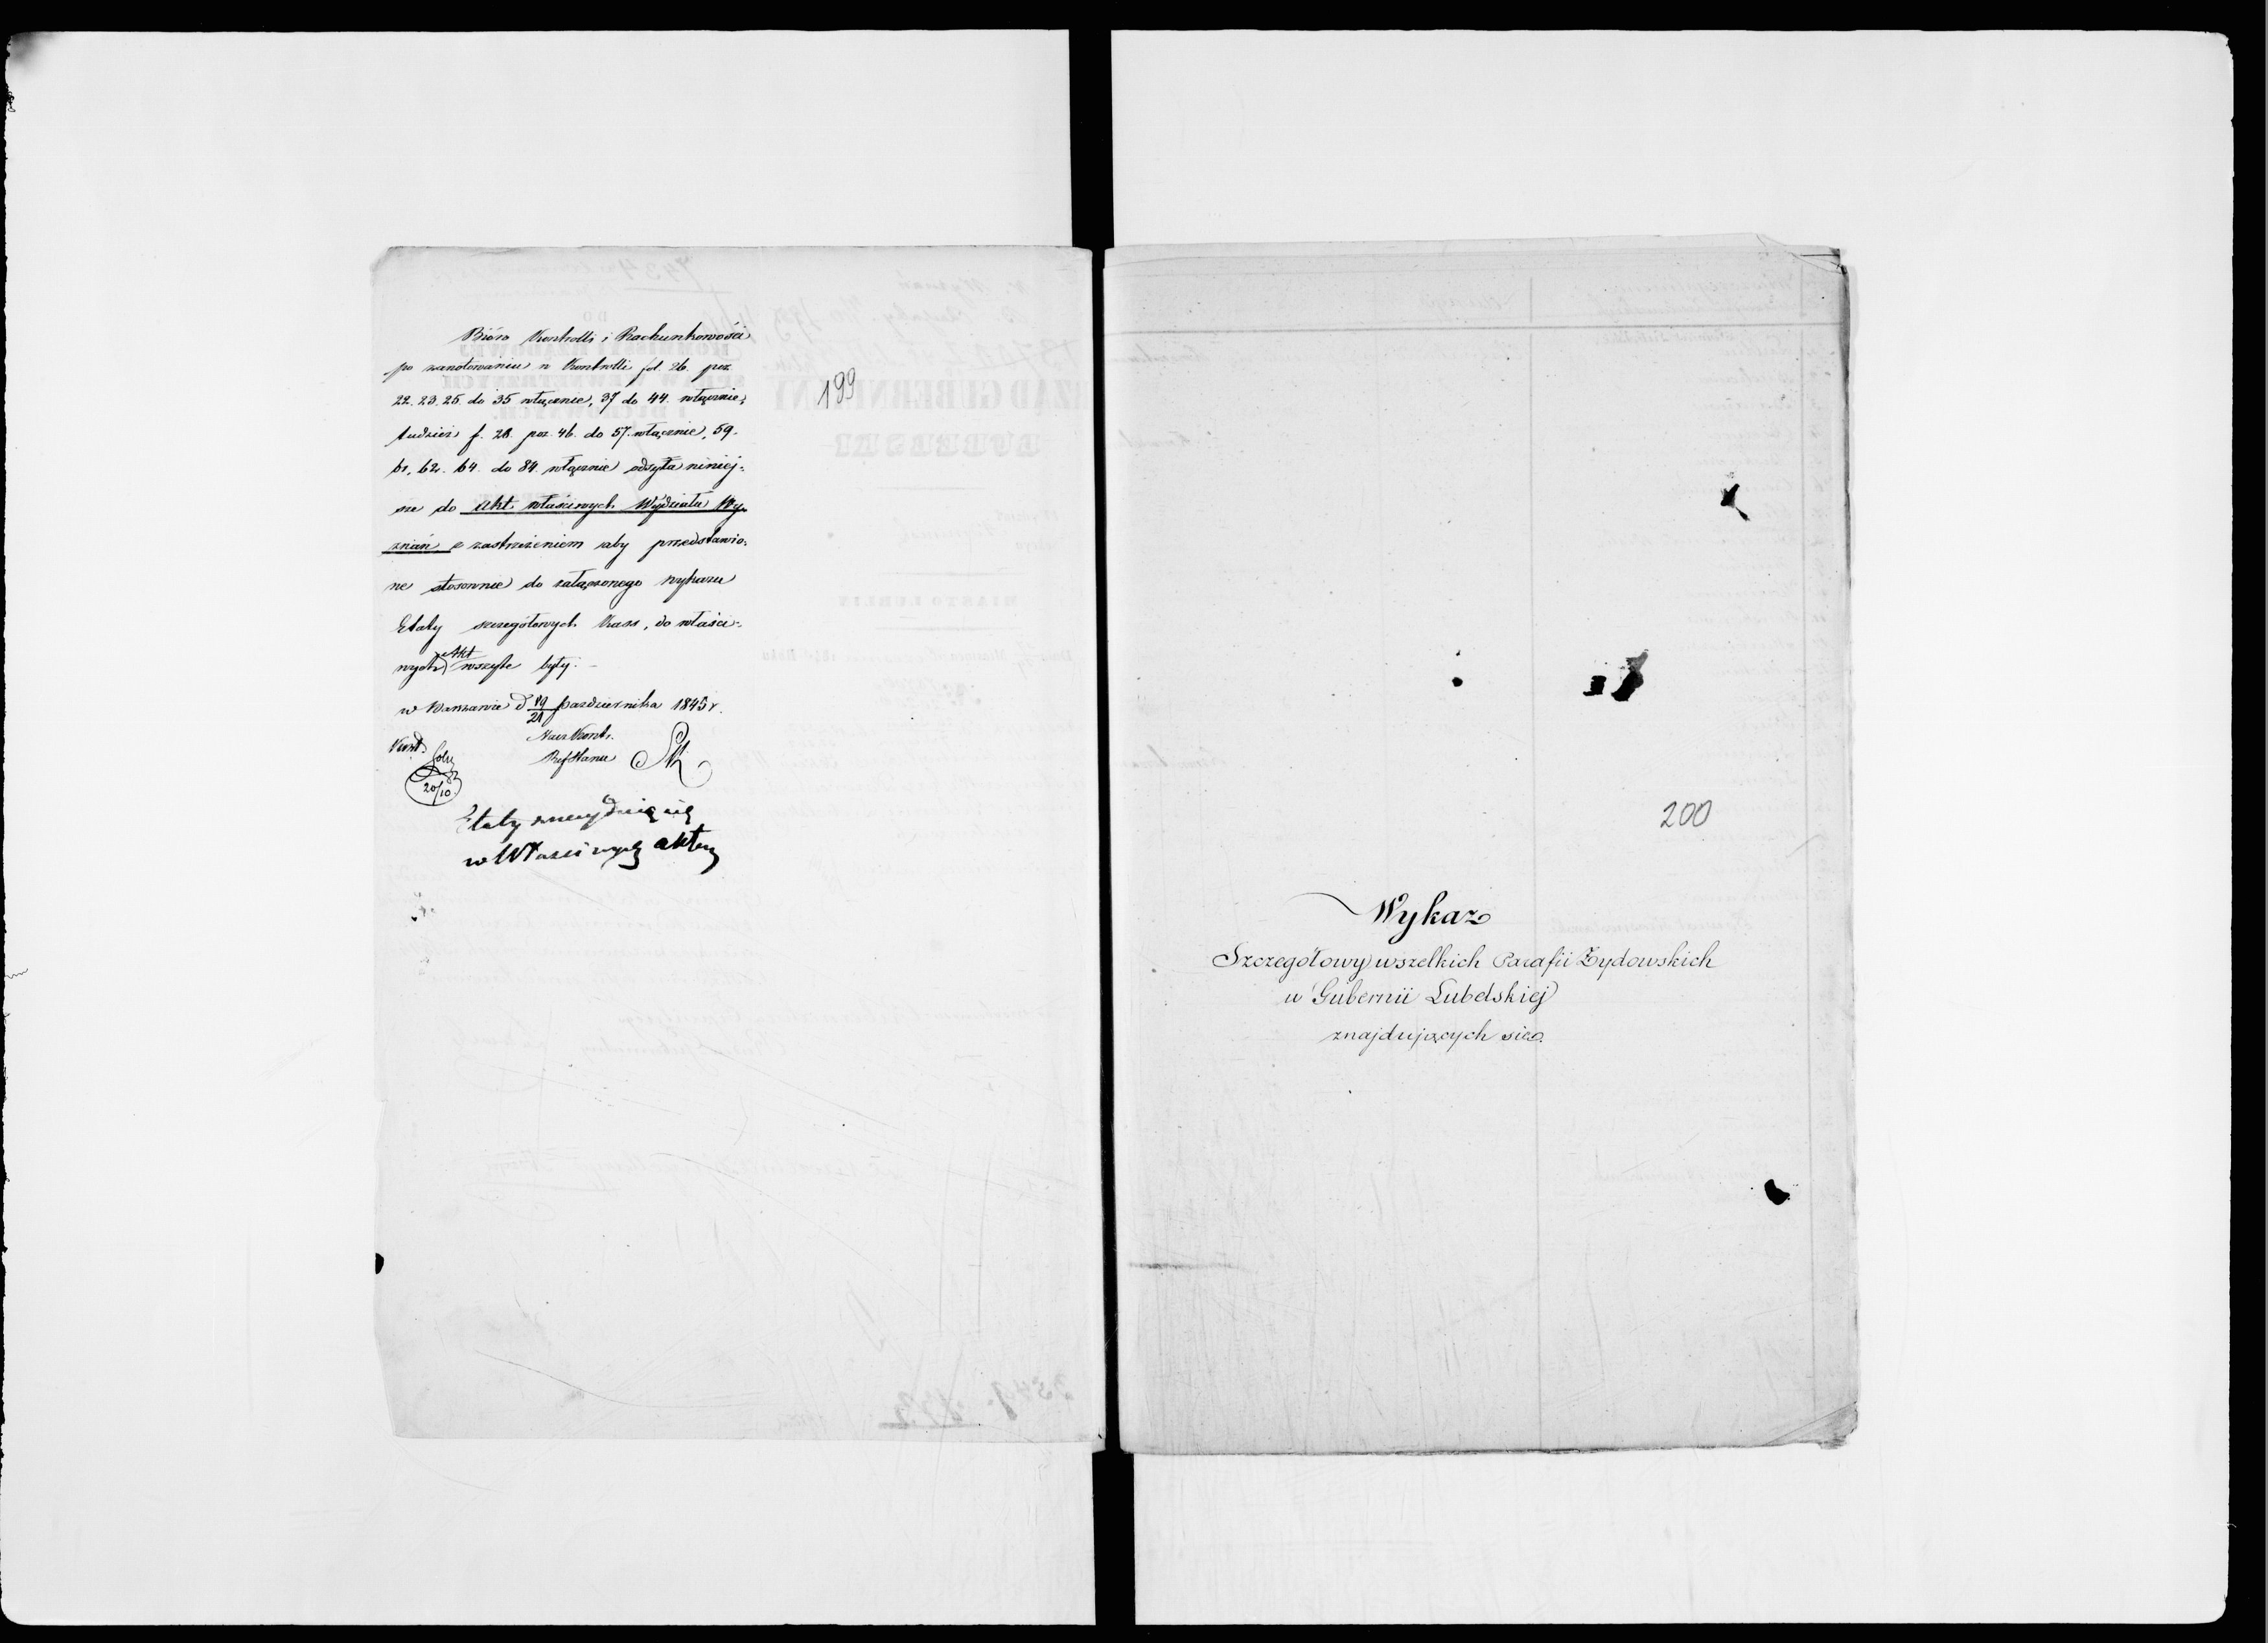 Bióro Kontrolli i Rachunkowości
po zanotowaniu w Kontrolli fol. 26. poz
22. 23. 25. do 35 włącznie, 37 do 44. włącznie,
tudzież f. 28. poz. 46. do 57. włącznie, 59.
61, 62. 64. do 84. włącznie odsyła niniej-
sze do Akt właściwych Wydziału Wy-
znań z zastrzeżeniem aby przedstawio-
ne stosownie do załączonego wykazu
Etaty szczegółowych Kass, do właści-
wych Akt wszyte były. –
w Warszawie d 19/21 Października 1845 r.
Nacz Kontr.
Ref Stanu
20/10
Etaty znaydują się
w Właściwych aktach
199
200
Wykaz
Szczegółowy wszelkich Parafii Żydowskich
w Gubernii Lubelskiej
znajdujących się.